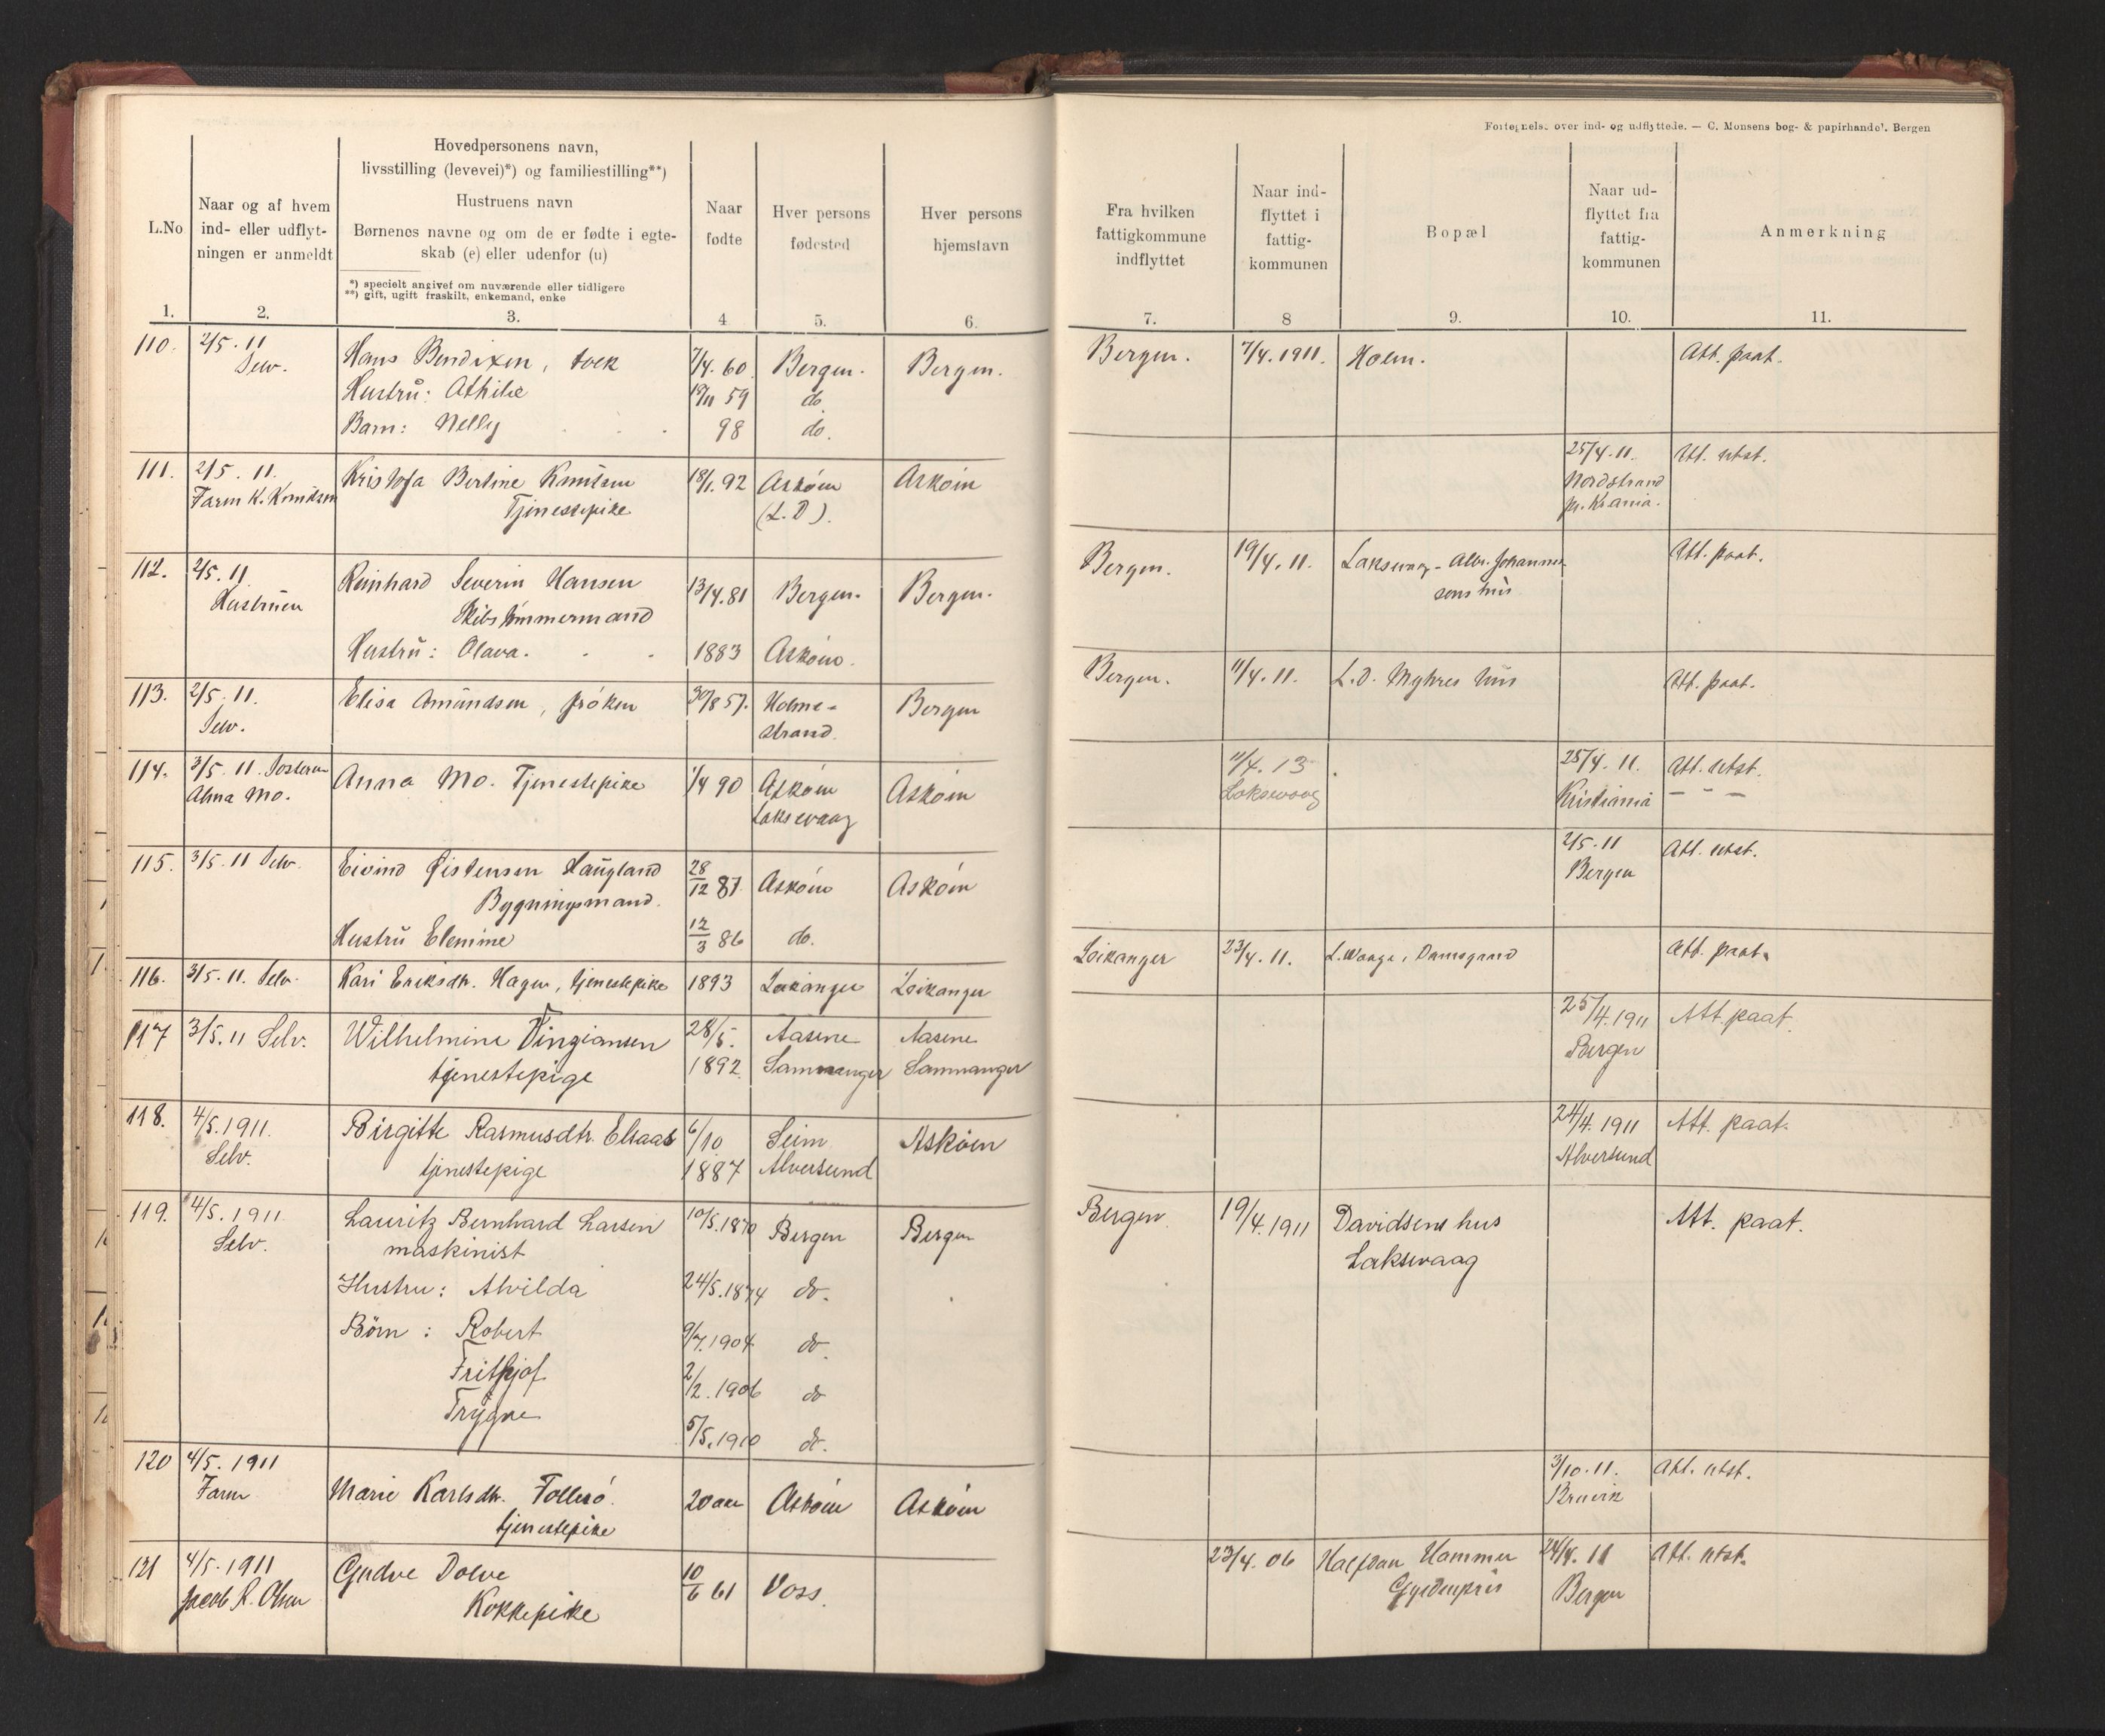 Fortegnelse over ind- og udflyttede. — C. Monsens bog- & papirhandel. Bergen
L.No
1.
Naar og af hvem
ind- eller udflyt-
ningen er anmeldt
2.
Hovedpersonens navn,
livsstilling (levevei)*) og familiestilling**)
Hustruens navn
Børnenes navne og om de er fødte i egte-
skab (e) eller udenfor (u)
*) specielt angivet om nuværende eller tidligere
**) gift, ugift fraskilt, enkemand, enke
3.
Naar
fødte
4
Hver persons
fødested
5.
Hver persons
hjemstavn
6.
Fra hvilken
fattigkommune
indflyttet
7.
Naar ind-
flyttet i
fattig-
kommunen
8
Bopæl
9.
Naar ud-
flyttet fra
fattig-
kommunen
10.
Anmerkning
11.
110. 2/5. 11 Hans Bendixen, kok 7/4. 60 Bergen. Bergen. Bergen. 7/4. 1911. Holm. Att. paat.
Selv. Hustru: Athilie 59 do
Barn: Nelly 98 do.
111. 2/5. 11. Bertine Knutsen 18/1. 92 Askøen Askøen 25/4. 11. Att. utst.
Farm K. Knudsen Tjenestepike (L. D). Nordstrand
pr. Kr.ania.
112. 2/5. 11 Reinhard Severin Hansen 13/4. 81 Bergen. Bergen. Bergen. 19/4. 11. Laksevaag - Johannes-
Hustruen Skibstømmermand sens hus Att. paat.
Hustru: Olava. 1883 Askøen.
113. 2/5. 11. Elisa Amundsen, frøken 30/8 57. Holme- Bergen Bergen. 11/4. 11. L. D. Myhres hus Att. paat.
Selv. strand.
114. 3/5. 11. Søsteren Anna Mo. Tjenestepike 1/4 90 Askøen Askøen 11/4. 13 25/4. 11. Att. utst.
Alma Mo. Laksevaag Laksevaag Kristiania — " —
115. 3/5. 11 Selv. Eivind Øistensen Haugland 28/12 87 Askøen Askøen 2/5. 11 Att. utst.
Bygningsmand. Bergen
Hustru Elemine 12/3 86 do.
116. 3/5. 11. Selv. Kari Eriksdtr. Hagen, tjenestepike 1893 Leikanger Leikanger Leikanger 23/4. 11. L. Waage, Damsgaard Att. paat.
117 3/5. 11 Selv. Wilhelmine 28/5. Aasene Aasene 25/4. 1911 Att. paat.
tjenestepige 1892. Samnanger Samnanger Bergen
118. 4/5. 1911. Birgitte Rasmusdtr. 6/10 Seim Askøen 24/4. 1911 Att. paat.
Selv. tjenestepige 1887 Alversund Alversund
119. 4/5. 1911 Lauritz Bernhard Larsen 10/5. 1870 Bergen Bergen Bergen 19/4. 1911 Davidsens hus Att. paat.
Selv. maskinist Laksevaag
Hustru: Alvilda 24/5. 1874 do.
Børn: Robert 9/7. 1904. do.
Frithjof 2/2. 1906 do
Trygve 5/5. 1910 do.
120 4/5. 1911 Marie Karlsdtr. Follesø. 20 aar Askøen Askøen 3/10. 11. Att. utst.
Faren tjenestepike Bruvik
121 4/5. 1911 Gudve Dolve 10/6 61 Voss. 23/4. 06 Halfdan Hammer 24/4. 11 Att. utst.
Jacob R. Olsen Kokkepike Gyldenpris Bergen